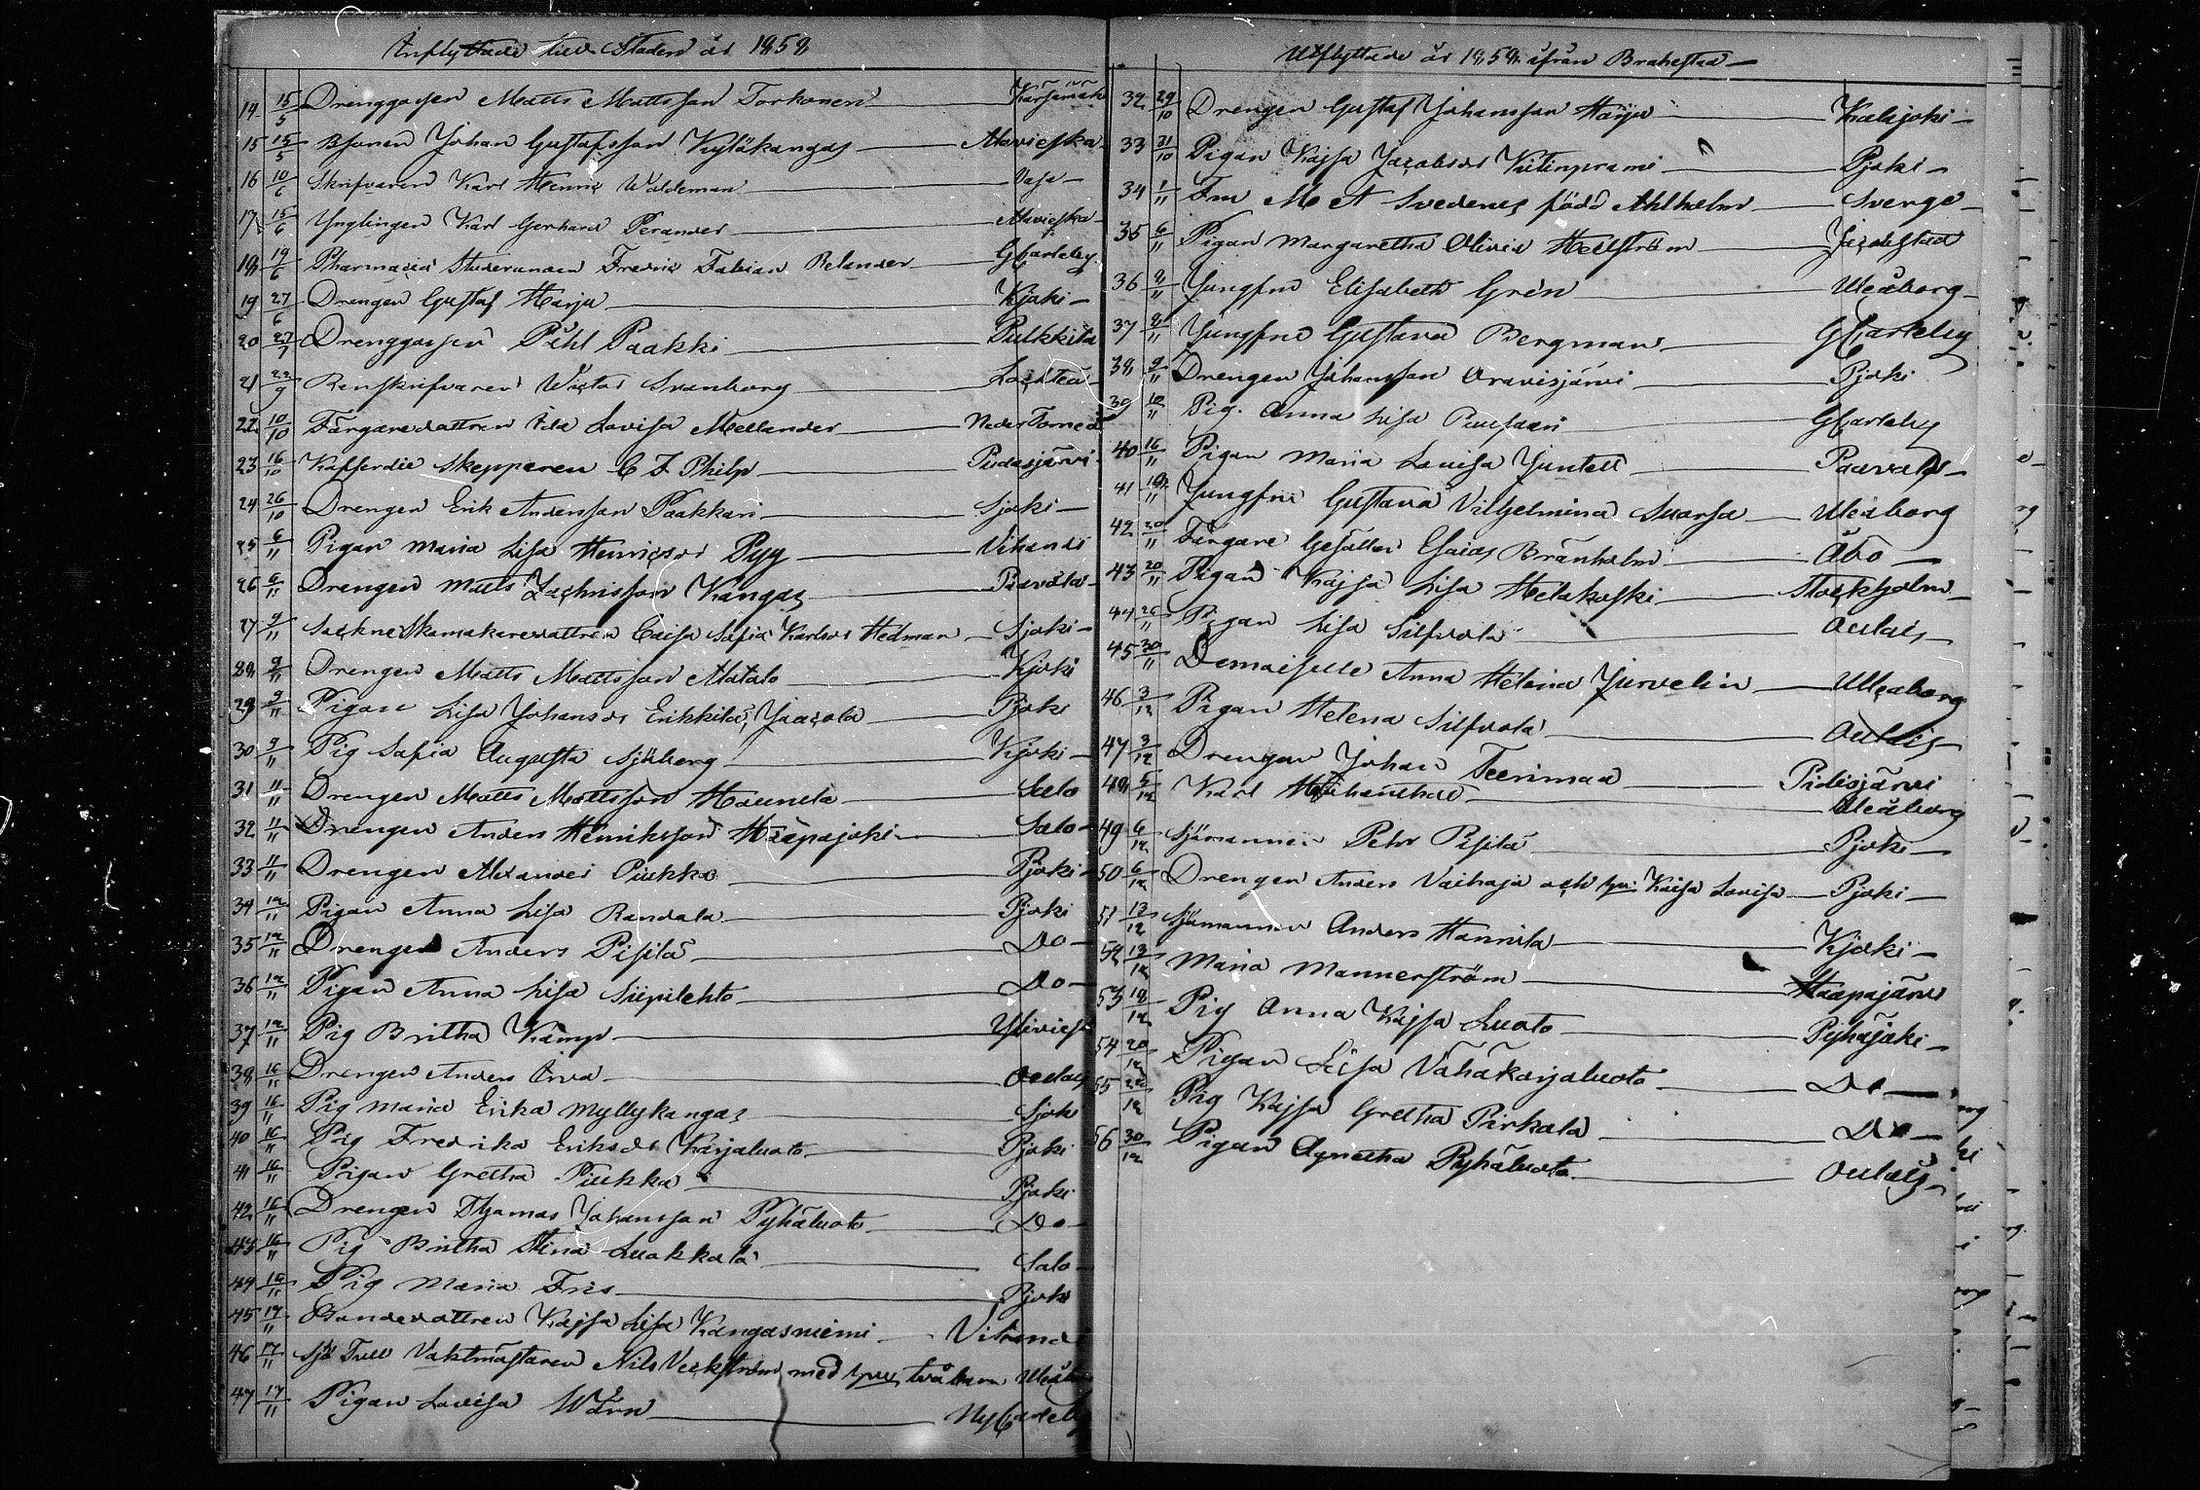 Inflyttade till Staden år 1858
14 15/5 Drenggossen Matts Mattsson Torkonen Kärsämäk
15 15/5 Johan Gustafsson Kylökangas Alavieska
16 10/6 Skrifvaren Karl Henric Waldeman Vasa
17 15/6 Ynglingen Karl Gerhard Perander Alavieska
18 19/6 Pharmacia Studeranden Fredric Fabian Relander GCarleby
19 27/6 Drengen Gustaf Harju Kjoki
20 27/7 Drenggossen Påhl Paakki Pulkkila
21 22/9 Renskrifvaren Wictor Svanborg Lochteå
22 10/10 Färgaredottren Ida Lovisa Mellander Neder Torneå
23 16/10 Kofferdie Skepparen C F Philp Pudasjärvi
24 26/10 Drengen Erik Andersson Paakkari Sjoki
25 6/11 Pigan Maria Lisa Henricsdr Pyy Vihandi
26 6/11 Drengen Matts Zachrisson Kangas Paavola
27 9/11 Sockneskomakaredottren Caisa Sofia Karlsdr Hedman Sjoki
28 9/11 Drengen Matts Mattsson Alatalo Kjoki
29 9/11 Pigan Lisa Johansdr Erikkilä, Jaacola Pjoki
30 9/11 Pig Sofia Augusta Sjöberg Kjoki
31 11/11 Drengen Matts Mattsson Haunela Salo
32 11/11 Drengen Anders Henriksson Haapajoki Salo
33 11/11 Drengen Alexander Piukko Pjoki
34 12/11 Pigan Anna Lisa Randala Pjoki
35 12/11 Drengen Anders Pisilä Do
36 12/11 Pigan Anna Lisa Siipilehto Do
37 12/11 Pig Britha Kämp Ylivieska
38 16/11 Drengen Anders Orva Oulais
39 16/11 Pig Maria Erika Myllykangas Sjoki
40 16/11 Pig Fredrika Eriksdr Karjaluoto Pjoki
41 16/11 Pigan Gretha Piukka Pjoki
42 16/11 Drengen Thomas Johansson Pyhäluoto Do
43 16/11 Pig Britha Stina Luokkala Salo
44 16/11 Pig Maria Fris Pjoki
45 17/11 Bondedottren Kajsa Lisa Kangasniemi Vihand
46 17/11 Sjö Tull Vaktmästaren Nils Veckström med hustru två barn Uleåb
47 17/11 Pigan Lovisa Wärn NyCarleby
Utflyttade år 1858 ifrån Brahestad
32 29/10 Drengen Gustaf Johansson Harju Kalajoki
33 31/10 Pigan Kajsa Jacobsdr Pjoki
34 1/11 Fru M A Svedenes född Ahlholm Sverge
35 6/11 Pigan Margaretha Olivia Hellström Jacobstad
36 8/11 Jungfru Elisabeth Grén Uleåborg
37 8/11 Jungfru Gustava Bergman GCarleby
38 9/11 Drengen Johansson Oravisjärvi Pjoki
39 10/11 Pig. Anna Lisa GCarleby
40 16/11 Pigan Maria Lovisa Juntell Paavola
41 18/11 Jungfru Gustava Vilhelmina Suorsa Uleåborg
42 20/11 Färgare Gesällen Esaias Brånholm Åbo
43 20/11 Pigan Kajsa Lisa Helakoski Stockholm
44 26/11 Pigan Lisa Silfvola Oulais
45 30/11 Demoiselle Anna Helena Jurvelin Uleåborg
46 3/12 Pigan Helena Silfvola Oulais
47 3/12 Drengen Johan Teerimaa Pidisjärvi
48 5/12 Karl Uleåborg
49 6/12 Sjömannen Petr Pisilä Pjoki
50 6/12 Drengen Anders Vaihoja och hu: Kaisa Lovisa Pjoki
51 13/12 Sjömannen Anders Hannila Kjoki
52 13/12 Maria Mannerström Haapajärvi
53 18/12 Pig Anna Kajsa Luoto Pyhäjoki
54 20/12 Pigan Lisa Vähäkarjaluoto Do
55 22/12 Pig Kajsa Gretha Pirkola Do
56 30/12 Pigan Agnetha Pyhäluoto Oulais